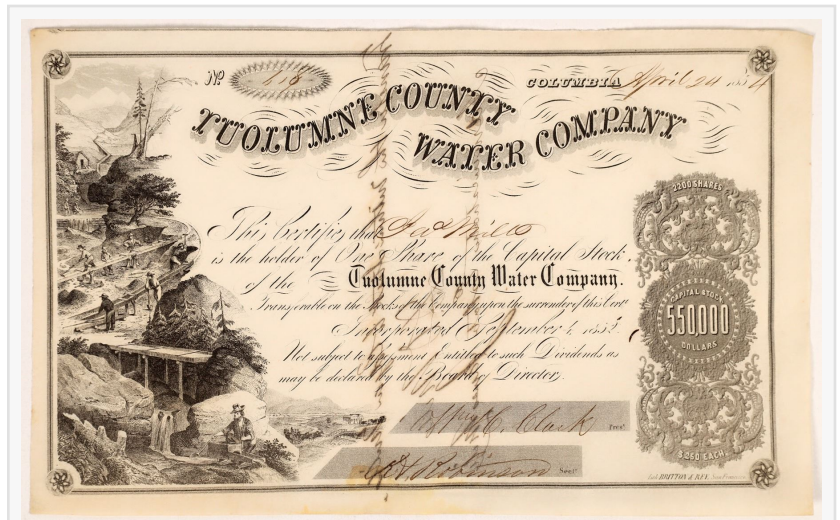 No 818
COLUMBIA April 24 1854
TUOLUMNE COUNTY
WATER COMPANY
2200 SHARES
This Certifies that Jas Mills
is the holder of One Share of the Capital Stock
of the Tuolumne County Water Company.
Transferable on the Books of the Company upon the surrender of this Cert.
CAPITAL STOCK
550,000
DOLLARS
Incorporated September 4, 1852.
Not subject to assessment Entitled to such Dividends as
may be declared by the Board of Directors.
Clark Prest
Robinson Secy
$250 EACH.
Lith BRITTON & REY, San Francisco